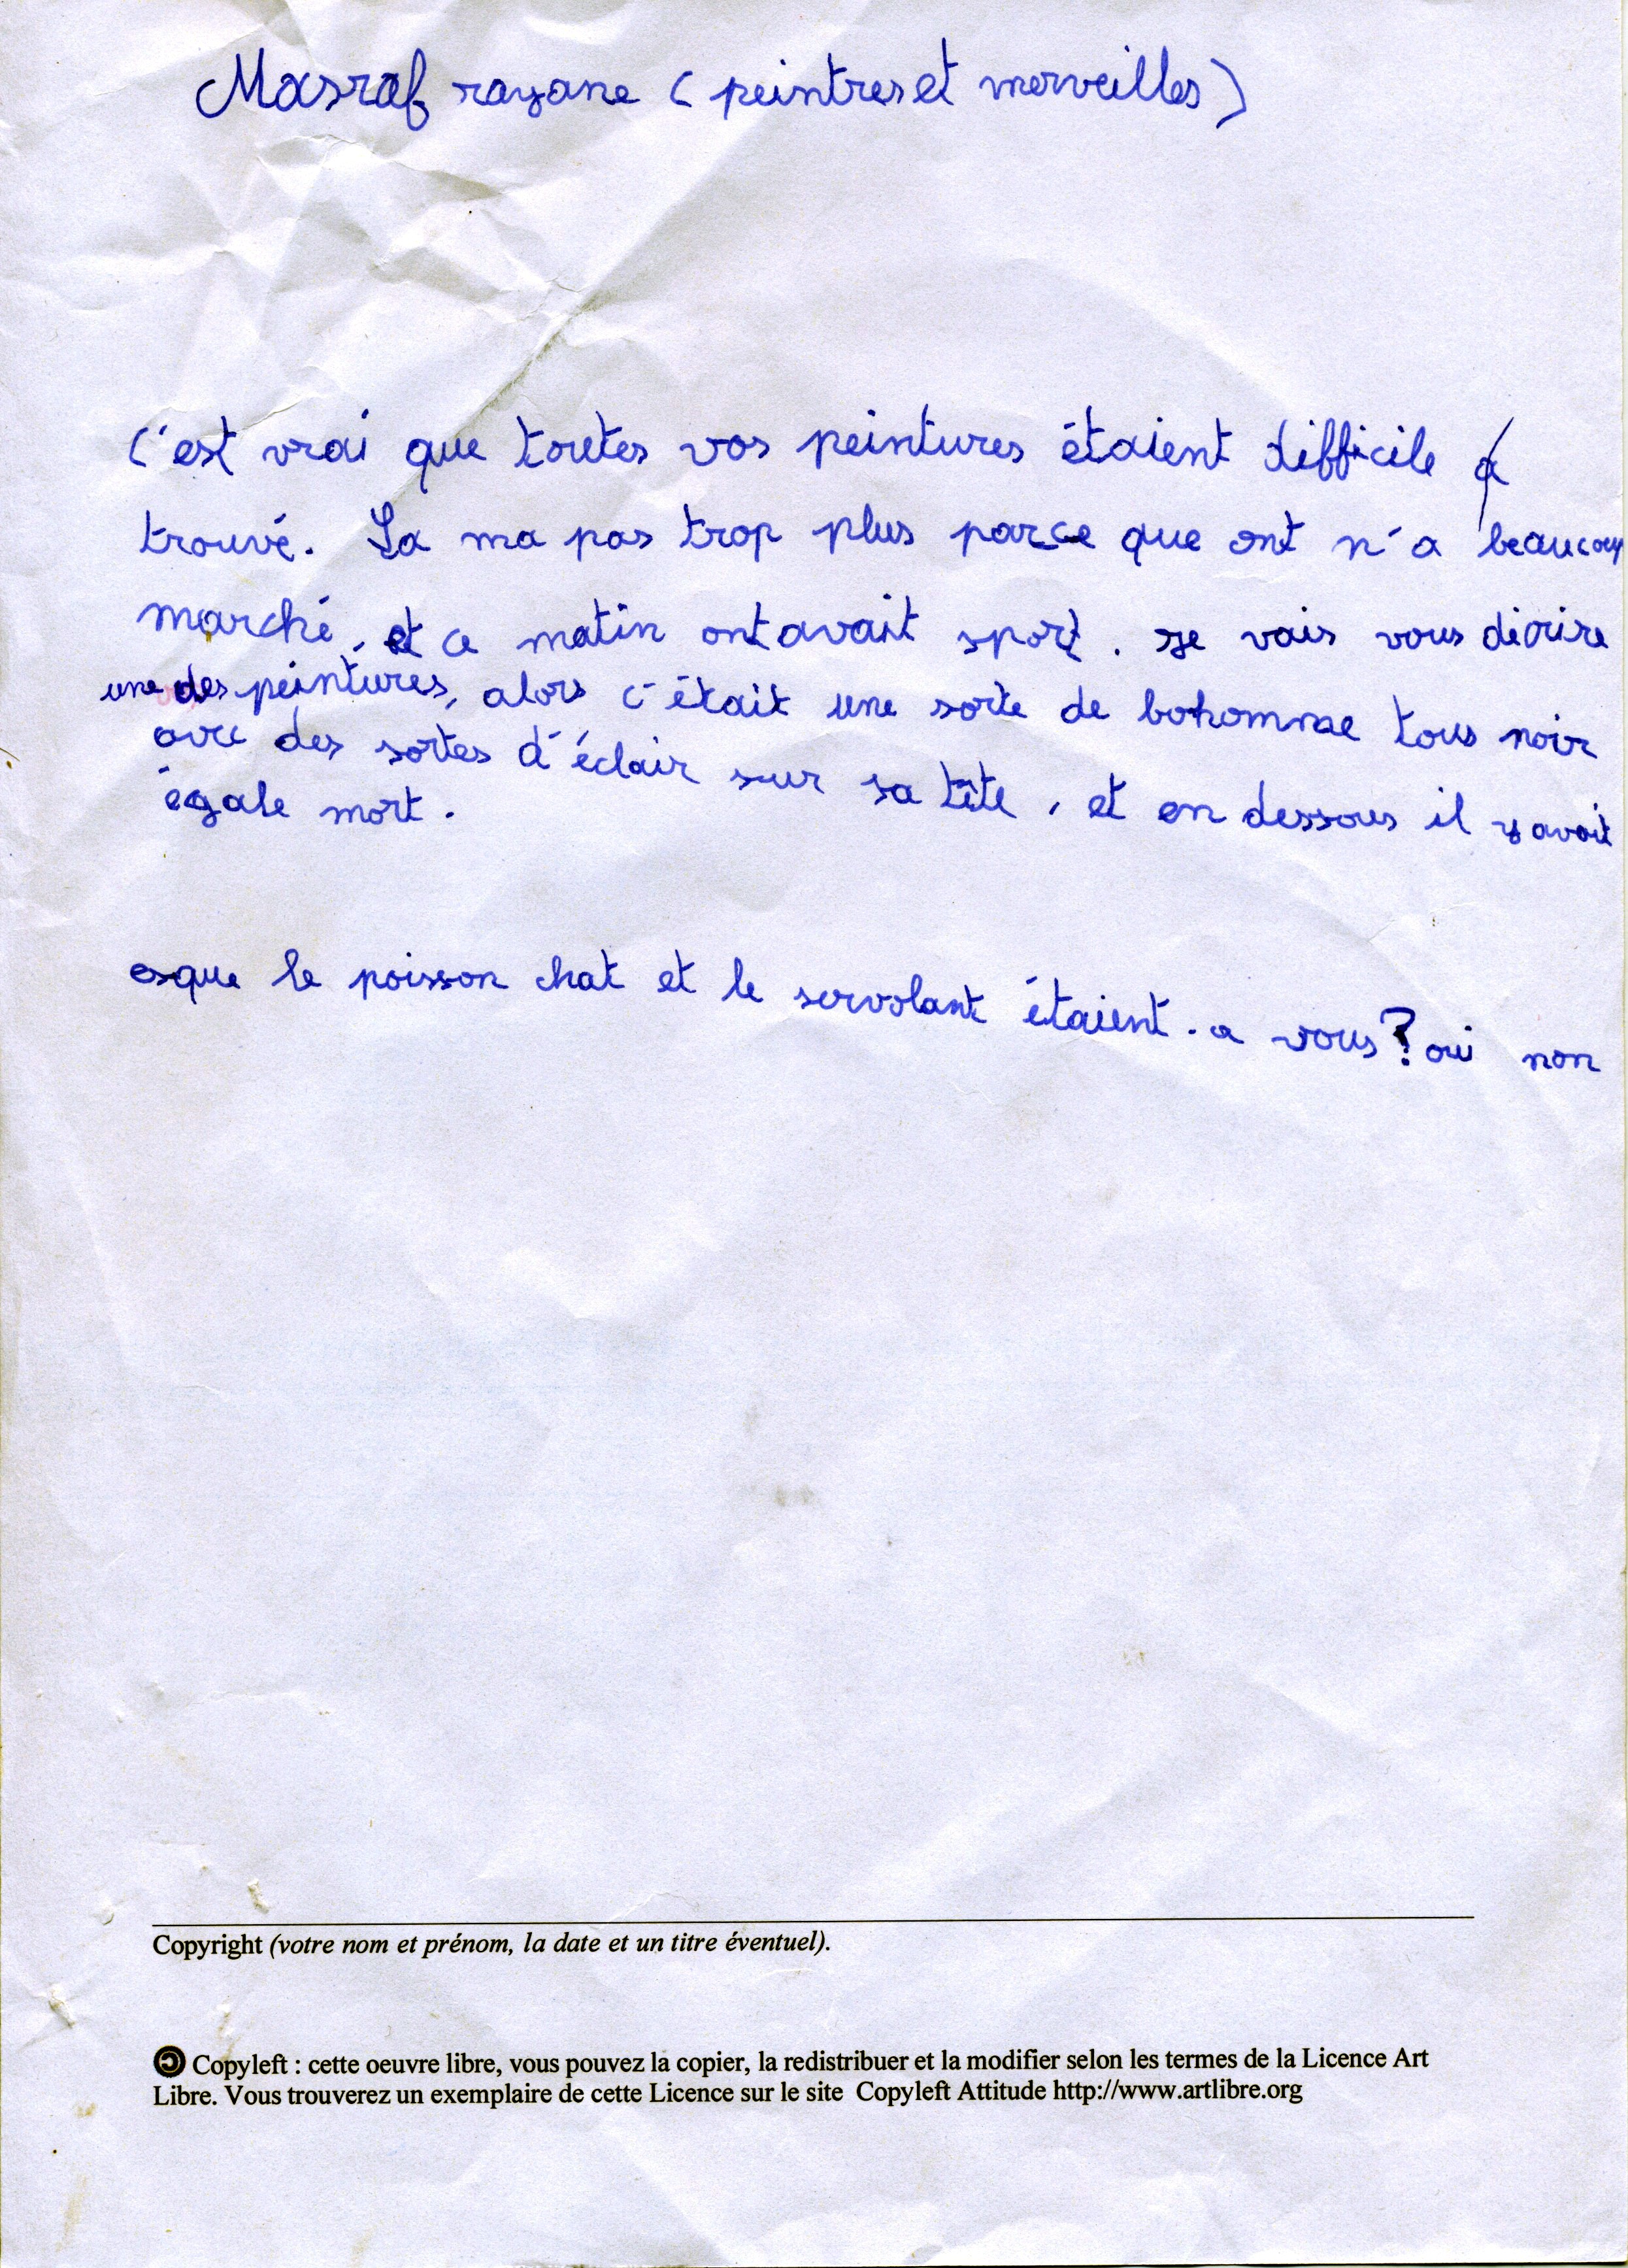 Masraf rayane ( peintres et merveilles )
C'est vrai que toutes vos peintures étaient difficile a
trouvé. Sa ma pas trop plus parce que ont n'a beaucoup
marché, et ce matin ont avait sport. je vais vous décrire
une des peintures, alors c'était une sorte de bohomme tous noir
avec des sortes d'éclair sur sa tête, et en dessous il y avait
égale mort.
esque le poisson chat et le servolant étaient a vous? oui non
Copyright (votre nom et prénom, la date et un titre éventuel).
Copyleft : cette oeuvre libre, vous pouvez la copier, la redistribuer et la modifier selon les termes de la Licence Art
Libre. Vous trouverez un exemplaire de cette Licence sur le site Copyleft Attitude http://www.artlibre.org